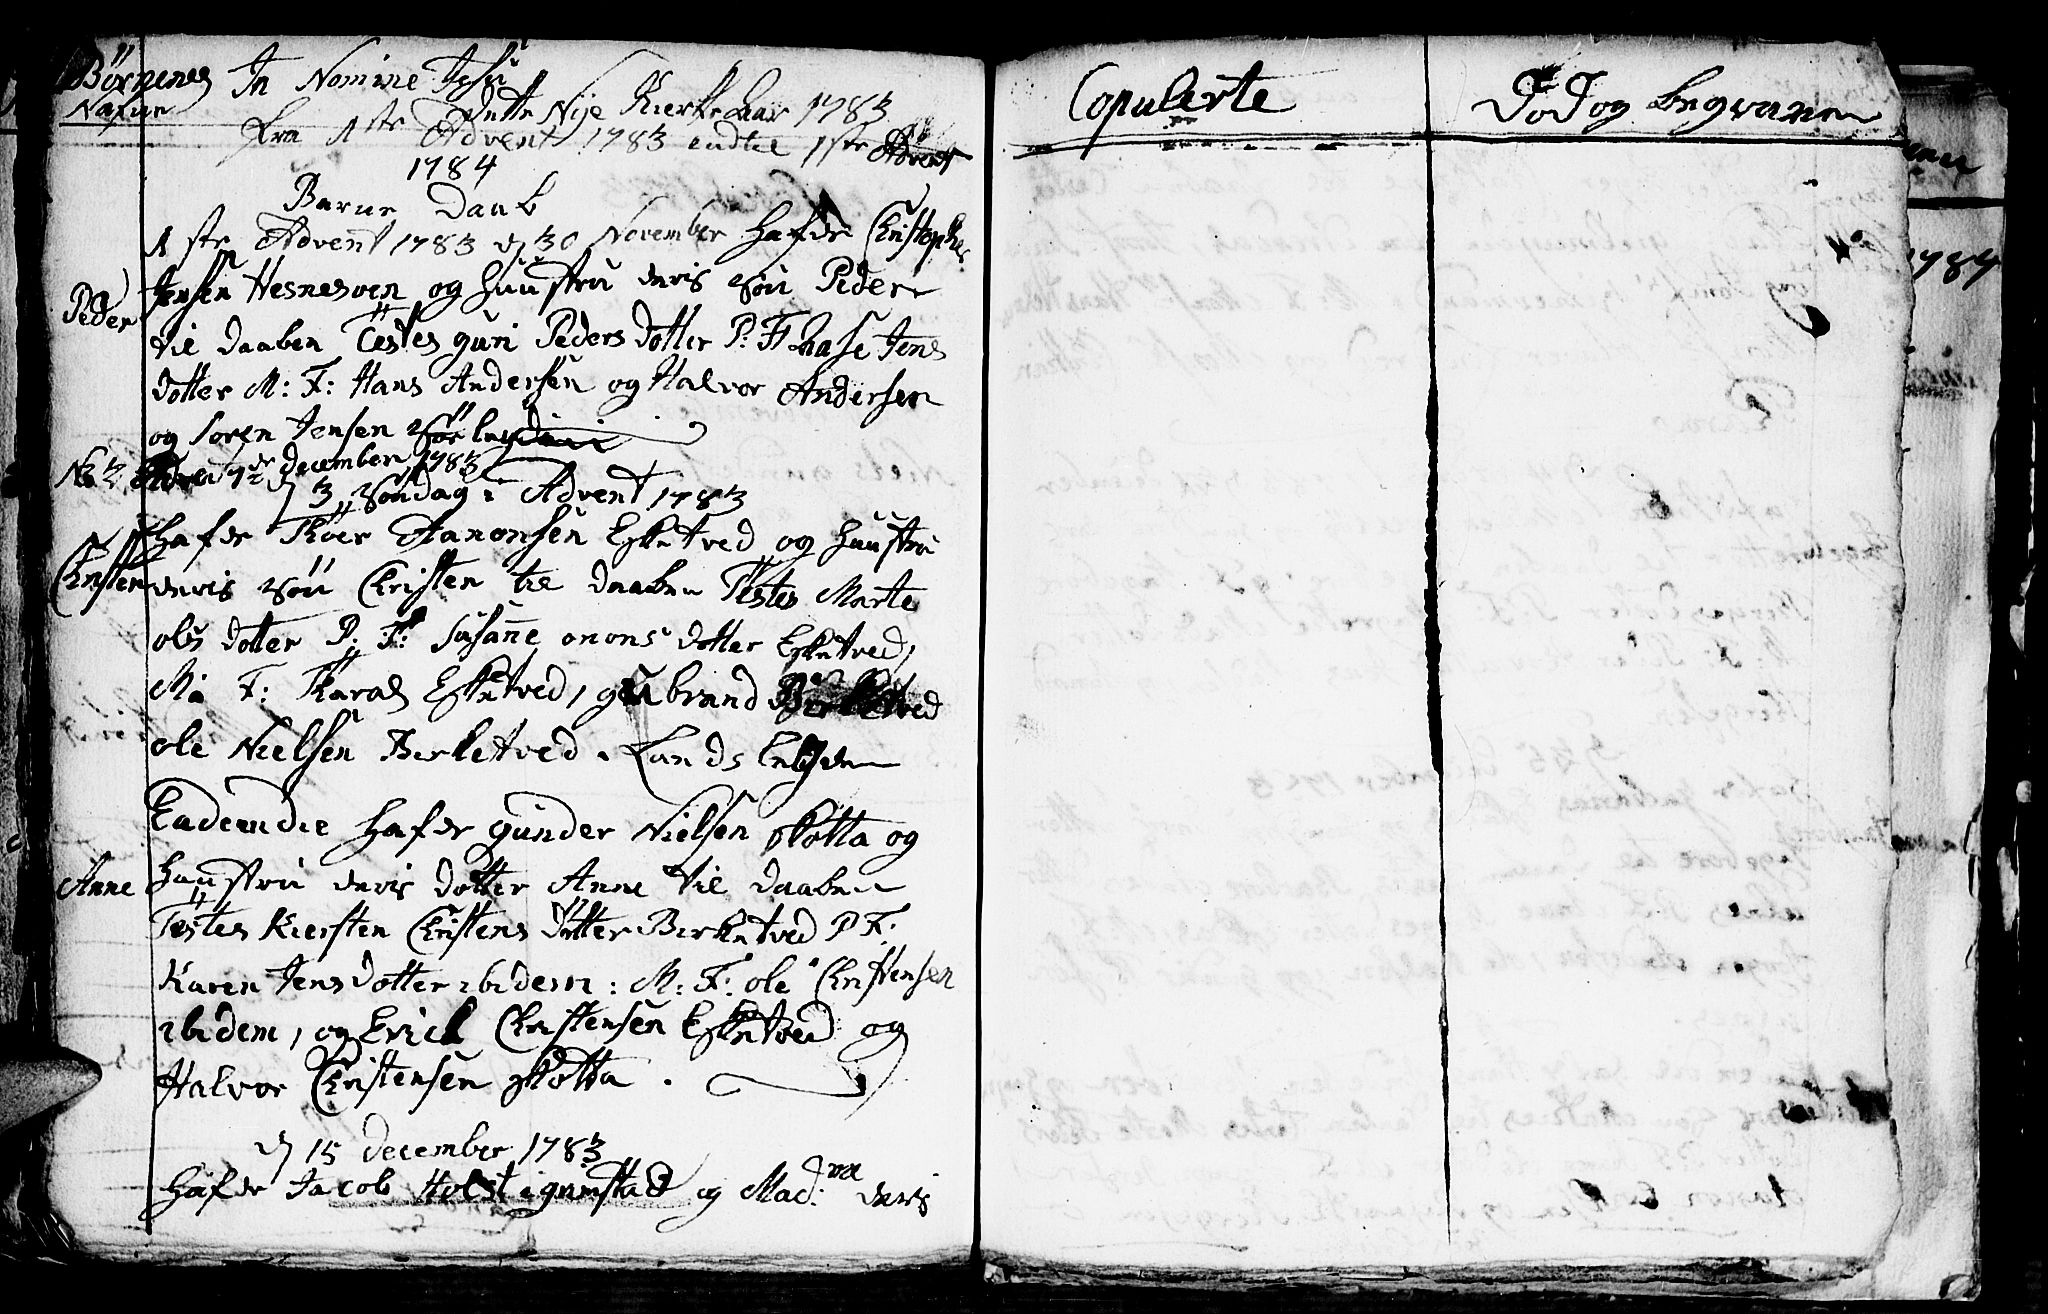 Börnenes
Nafne
In Nomine Jesu
dette Nije Kierke aar 1783
fra 1ste Advent 1783 endtil 1ste Advent
1784
Barne Daab
1ste Advent 1783 d 30 November hafde Christopher
Jensen Hesnesøen og huustru deris Søn Peder
Peder
til daaben Testes guri Peders dotter P: F: Aase Jens
dotter M: F: Hans Andersen og Halvor Andersen
og Soren Jensen
No 2 Advent 7de december 1783
d 3 Søndag i Advent 1783
hafde Thoer Aanonsen Esketved og huustru
Christen
deris Søn Christen til daaben Testes Marte
ols dotter P: F: Susanne onons dotter Esketved,
Ma F: Haral Esketved, gulbrand Birketved
ole Nielsen Berketved.
Eademdie hafde gunder Nielsen skotta og
Anne
huustru deris dotter Anne til daaben
Testes Kiersten Christens dotter Birketved P F:
Karen Jens dotter ibidem: M: F: ole Christensen
ibidem, og Erick Christensen Esketved og
Halvor Christensen skotta.
d 15 december 1783
hafde Jacob Holst i grimstad og Mad: deris
Copulerte
Død og begravne
1784